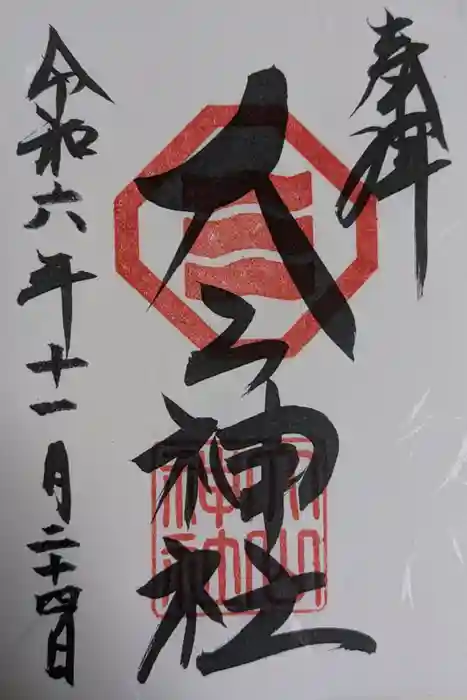 奉拝
大山神社
令和六年十一月二十四日